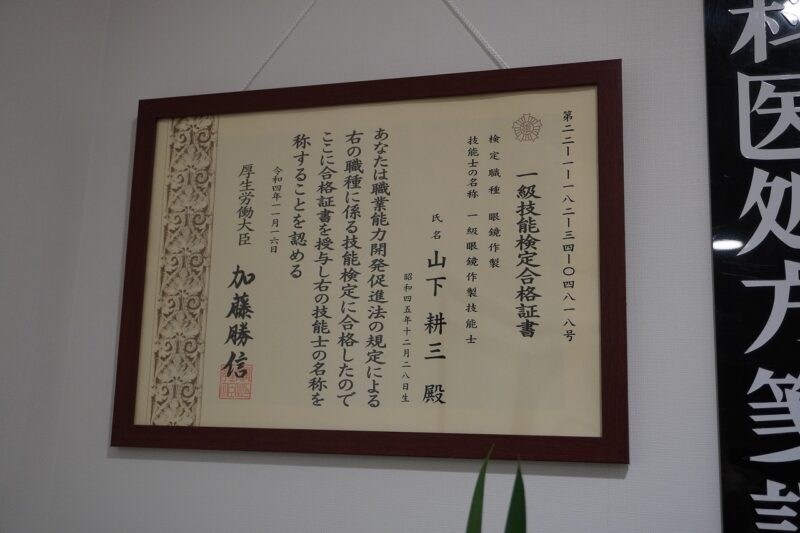 第二二―一―一八二―三四―〇四八一八号
一級技能検定合格証書
検定職種 眼鏡作製
技能士の名称 一級眼鏡作製技能士
氏名 山下耕三 殿
昭和四五年十二月二八日生
あなたは職業能力開発促進法の規定による
右の職種に係る技能検定に合格したので
ここに合格証書を授与し右の技能士の名称を
称することを認める
令和四年一一月一六日
厚生労働大臣 加藤勝信
科医処方箋